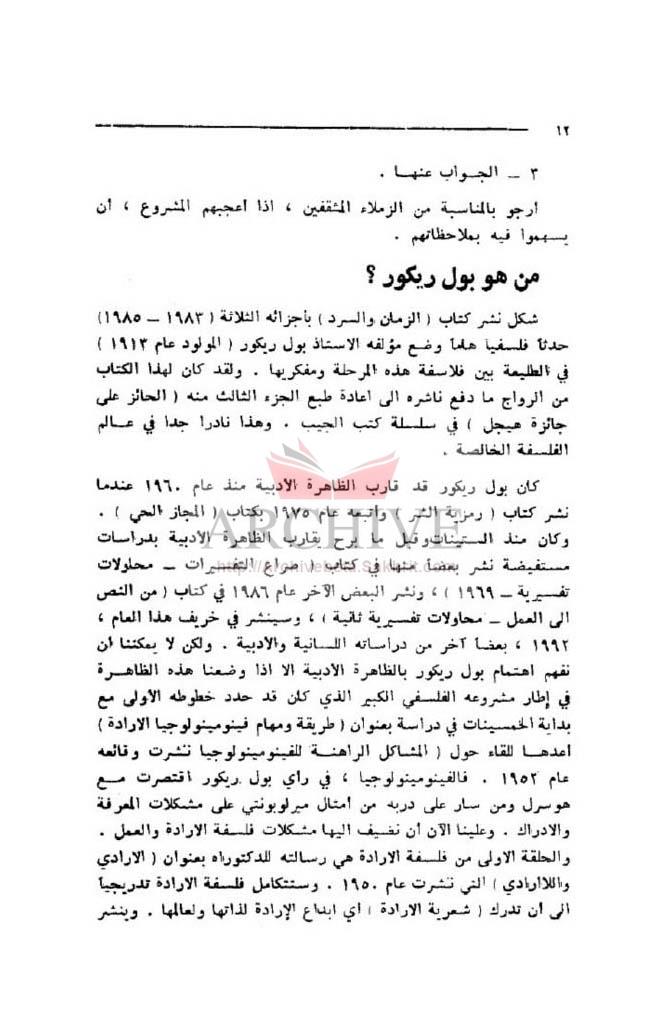 ١٢
٣ ــ الجـواب عنهـا .
أرجو بالمناسبة من الزملاء المثقفين ، اذا أعجبهم المشروع ، أن
يسهموا فيه بملاحظاتهم .
من هو بول ريكور ؟
شكل نشر كتاب ( الزمان والسرد ) بأجزائه الثلاثة ( ١٩٨٣ ــ ١٩٨٥)
حدثاً فلسفياً هاماً وضع مؤلفه الاستاذ بول ريكور ( المولود عام ١٩١٣ )
في الطليعة بين فلاسفة هذه المرحلة ومفكريها . ولقد كان لهذا الكتاب
من الرواج ما دفع ناشره الى اعادة طبع الجزء الثالث منه ( الحائز على
جائزة هيجل ) في سلسلة كتب الجيب . وهذا نادرا جدا في عـالم
الفلسفة الخالصة .
كان بول ريكور قد قارب الظاهرة الأدبية منذ عام ١٩٦٠ عندما
نشر كتاب ( رمزية الشر ) وأتبعه عام ١٩٧٥ بكتاب ( المجاز الحي ) .
وكان منذ الستينات وقبل ما برح يقارب الظاهرة الأدبية بدراسات
مستفيضة نشر بعضاً منها في كتاب ( صراع التفسيرات ــ محاولات
تفسيرية ــ ١٩٦٩ ) ، ونشر البعض الآخر عام ١٩٨٦ في كتاب ( من النص
الى العمل ــ محاولات تفسيرية ثانية ) ، وسينشر في خريف هذا العام ،
١٩٩٢ ، بعضاً آخر من دراساته اللسانية والأدبية . ولكن لا يمكننا أن
نفهم اهتمام بول ريكور بالظاهرة الأدبية الا اذا وضعنا هذه الظاهـرة
في إطار مشروعه الفلسفي الكبير الذي كان قد حدد خطوطه الأولى مع
بداية الخمسينات في دراسة بعنوان ( طريقة ومهام فينومينولوجيا الارادة )
أعدهـا للقاء حول ( المشاكل الراهنـة للفينومينولوجيا نشرت وقائعه
عام ١٩٥٢ . فالفينومينولوجيا ، في رأي بول ريكور اقتصرت مـع
هوسرل ومن سار على دربه من أمثال ميرلوبونتي على مشكلات المعرفة
والادراك . وعلينا الآن أن نضيف اليها مشكلات فلسفة الارادة والعمل .
والحلقة الاولى من فلسفة الارادة هي رسالته للدكتوراه بعنوان ( الارادي
واللاارادي ) التي نشرت عام ١٩٥٠ . وستتكامل فلسفة الارادة تدريجياً
الى أن تدرك ( شعرية الارادة ) أي ابداع الإرادة لذاتها ولعالمها . وينشر
ARCHIVE
http://Archivebeta.Sakhrit.com